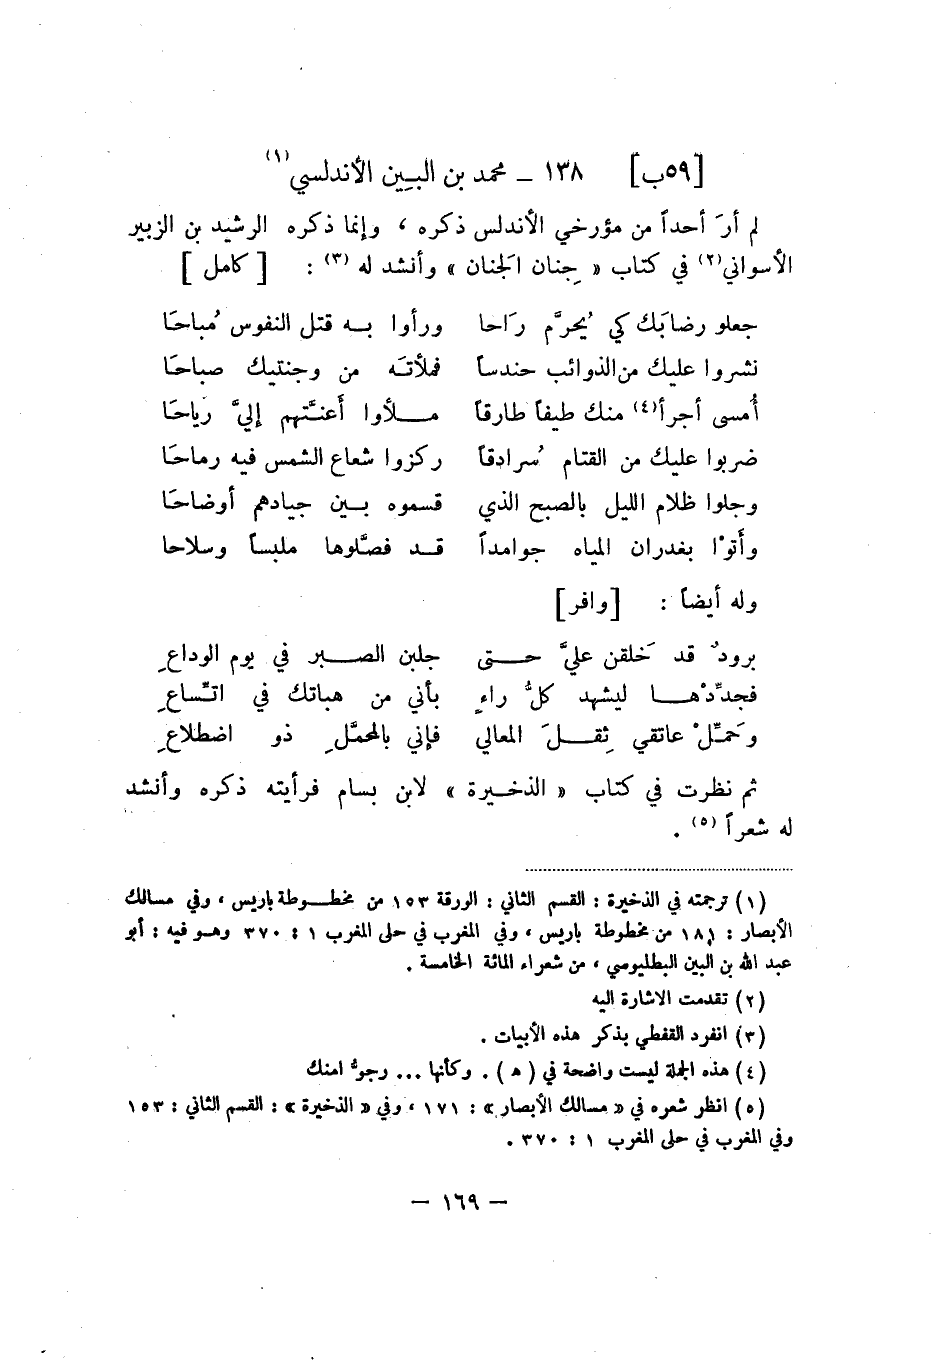 [٥٩ب] ١٣٨ ــ محمد بن البـيِن الأندلسي (١)
لم أرَ أحداً من مؤرخي الأندلس ذكره ، وإنما ذكره الرشيد بن الزبير
الأسواني(٢) في كتاب « جِنان الجنان » وأنشد له (٣) : [ كامل ]
جعلو رضابَك كي يُحرَّم رَاحا ورأوا بـه قتل النفوس مُباحَا
نشروا عليك من الذوائب حندساً فملأتَه من وجنتيك صباحَا
أُمسى أجرأ(٤) منك طيفاً طارقاً مـلأوا أَعنَّتهم إليَّ رياحَا
ضربوا عليك من القتام سُرادقاً ركزوا شعاع الشمس فيه رماحَا
وجلوا ظلام الليل بالصبح الذي قسموه بـين جيادهم أوضاحَا
وأتوْا بغدران المياه جوامداً قـد فصَّلوها ملبساً وسلاحا
وله أيضاً : [وافر]
برودٌ قد خَلقن عليَّ حـتى جلبن الصـبر في يوم الوداعِ
فجدِّدْهـا ليشهد كلُّ راءٍ بأني من هباتك في اتّساعِ
وحَمِّلْ عاتقي ثِقـلَ المعالي فإني بالمحمَّلِ ذو اضطلاعِ
ثم نظرت في كتاب « الذخـيرة » لابن بسام فرأيته ذكره وأنشد
له شعراً (٥) .
(١) ترجمته في الذخيرة : القسم الثاني : الورقة ١٥٣ من مخطـوطة باريس ، وفي مسالك
الأبصار : ١٨١ من مخطوطة باريس ، وفي المغرب في حلى المغرب ١ : ٣٧٠ وهـو فيه : أبو
عبد الله بن البين البطليوسي ، من شعراء المائة الخامسة .
(٢) تقدمت الاشارة اليه
(٣) انفرد القفطي بذكر هذه الأبيات .
(٤) هذه الجملة ليست واضحة في ( ه ) . وكأنها ... رجوٌ امنك
(٥) انظر شعره في « مسالك الأبصار » : ١٧١ ، وفي « الذخيرة » : القسم الثاني : ١٥٣
وفي المغرب في حلى المغرب ١ : ٣٧٠ .
— ١٦٩ —